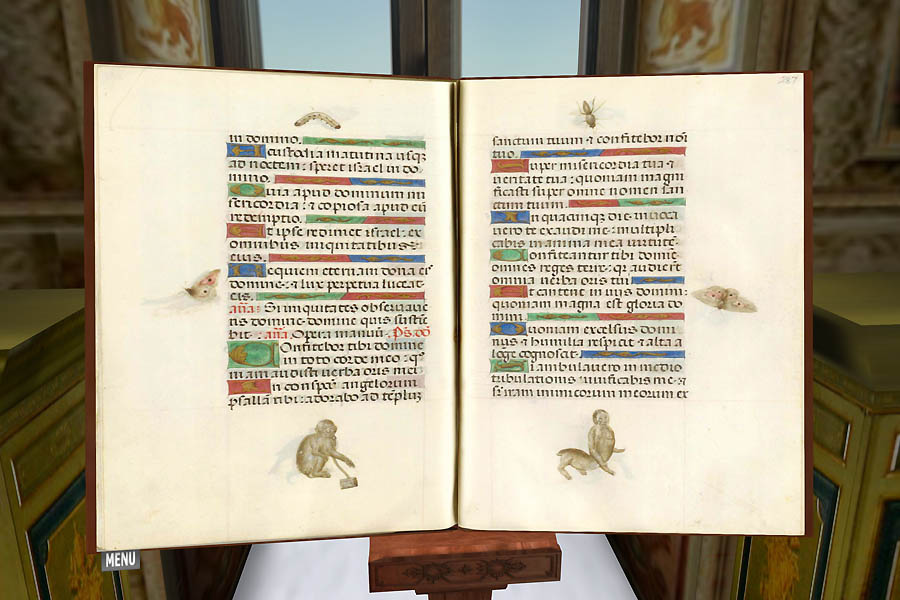 in domino.
custodia matutina usq
ad noctem: speret israel in do
mino.
Quia apud dominum mi
sericordia: & copiosa apud eu
redemptio.
Et ipse redimet israel: ex
omnibus iniquitatibus
eius.
Requiem eternam dona eis
domine: & lux perpetua luceat
eis.
aña: Si iniquitates observave
ris domine: domine quis sustie
bit: aña. Opera manuu. Ps. dd
Confitebor tibi domine
in toto corde meo: qm
iam audisti verba oris mei
In conspec angelorum
psallam tibi: adorabo ad templuz
287
sanctum tuum & confitebor noi
tuo.
Super misericordia tua &
veritate tua: quoniam magni
ficasti super omne nomen san
ctum tuum.
In quacunq die invoca
vero te exaudi me: multipli
cabis in anima mea virtute
Confiteantur tibi domine
omnes reges terre: q audierut
omnia verba oris tui
Et cantent in viis domini:
quoniam magna est gloria do
mini.
Quoniam excelsus domi
nus & humilia respicit & alta a
longe cognoscit.
Si ambulavero in medio
tribulationis vivificabis me: &
super iram inimicorum meorum ex
MENU